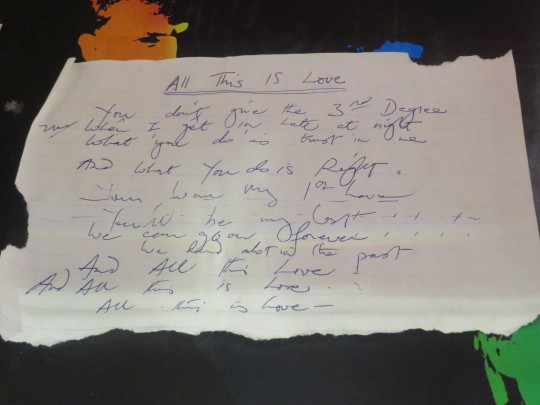 All This Is Love
You don't give the 3rd Degree
When I get in late at night
What you do is trust in me
And What You do is Right.
You were my 1st Love
You'll be my last . . . .
We can go on forever . . . .
We in the past
And All this Love
And All this is Love . .
All this is Love —